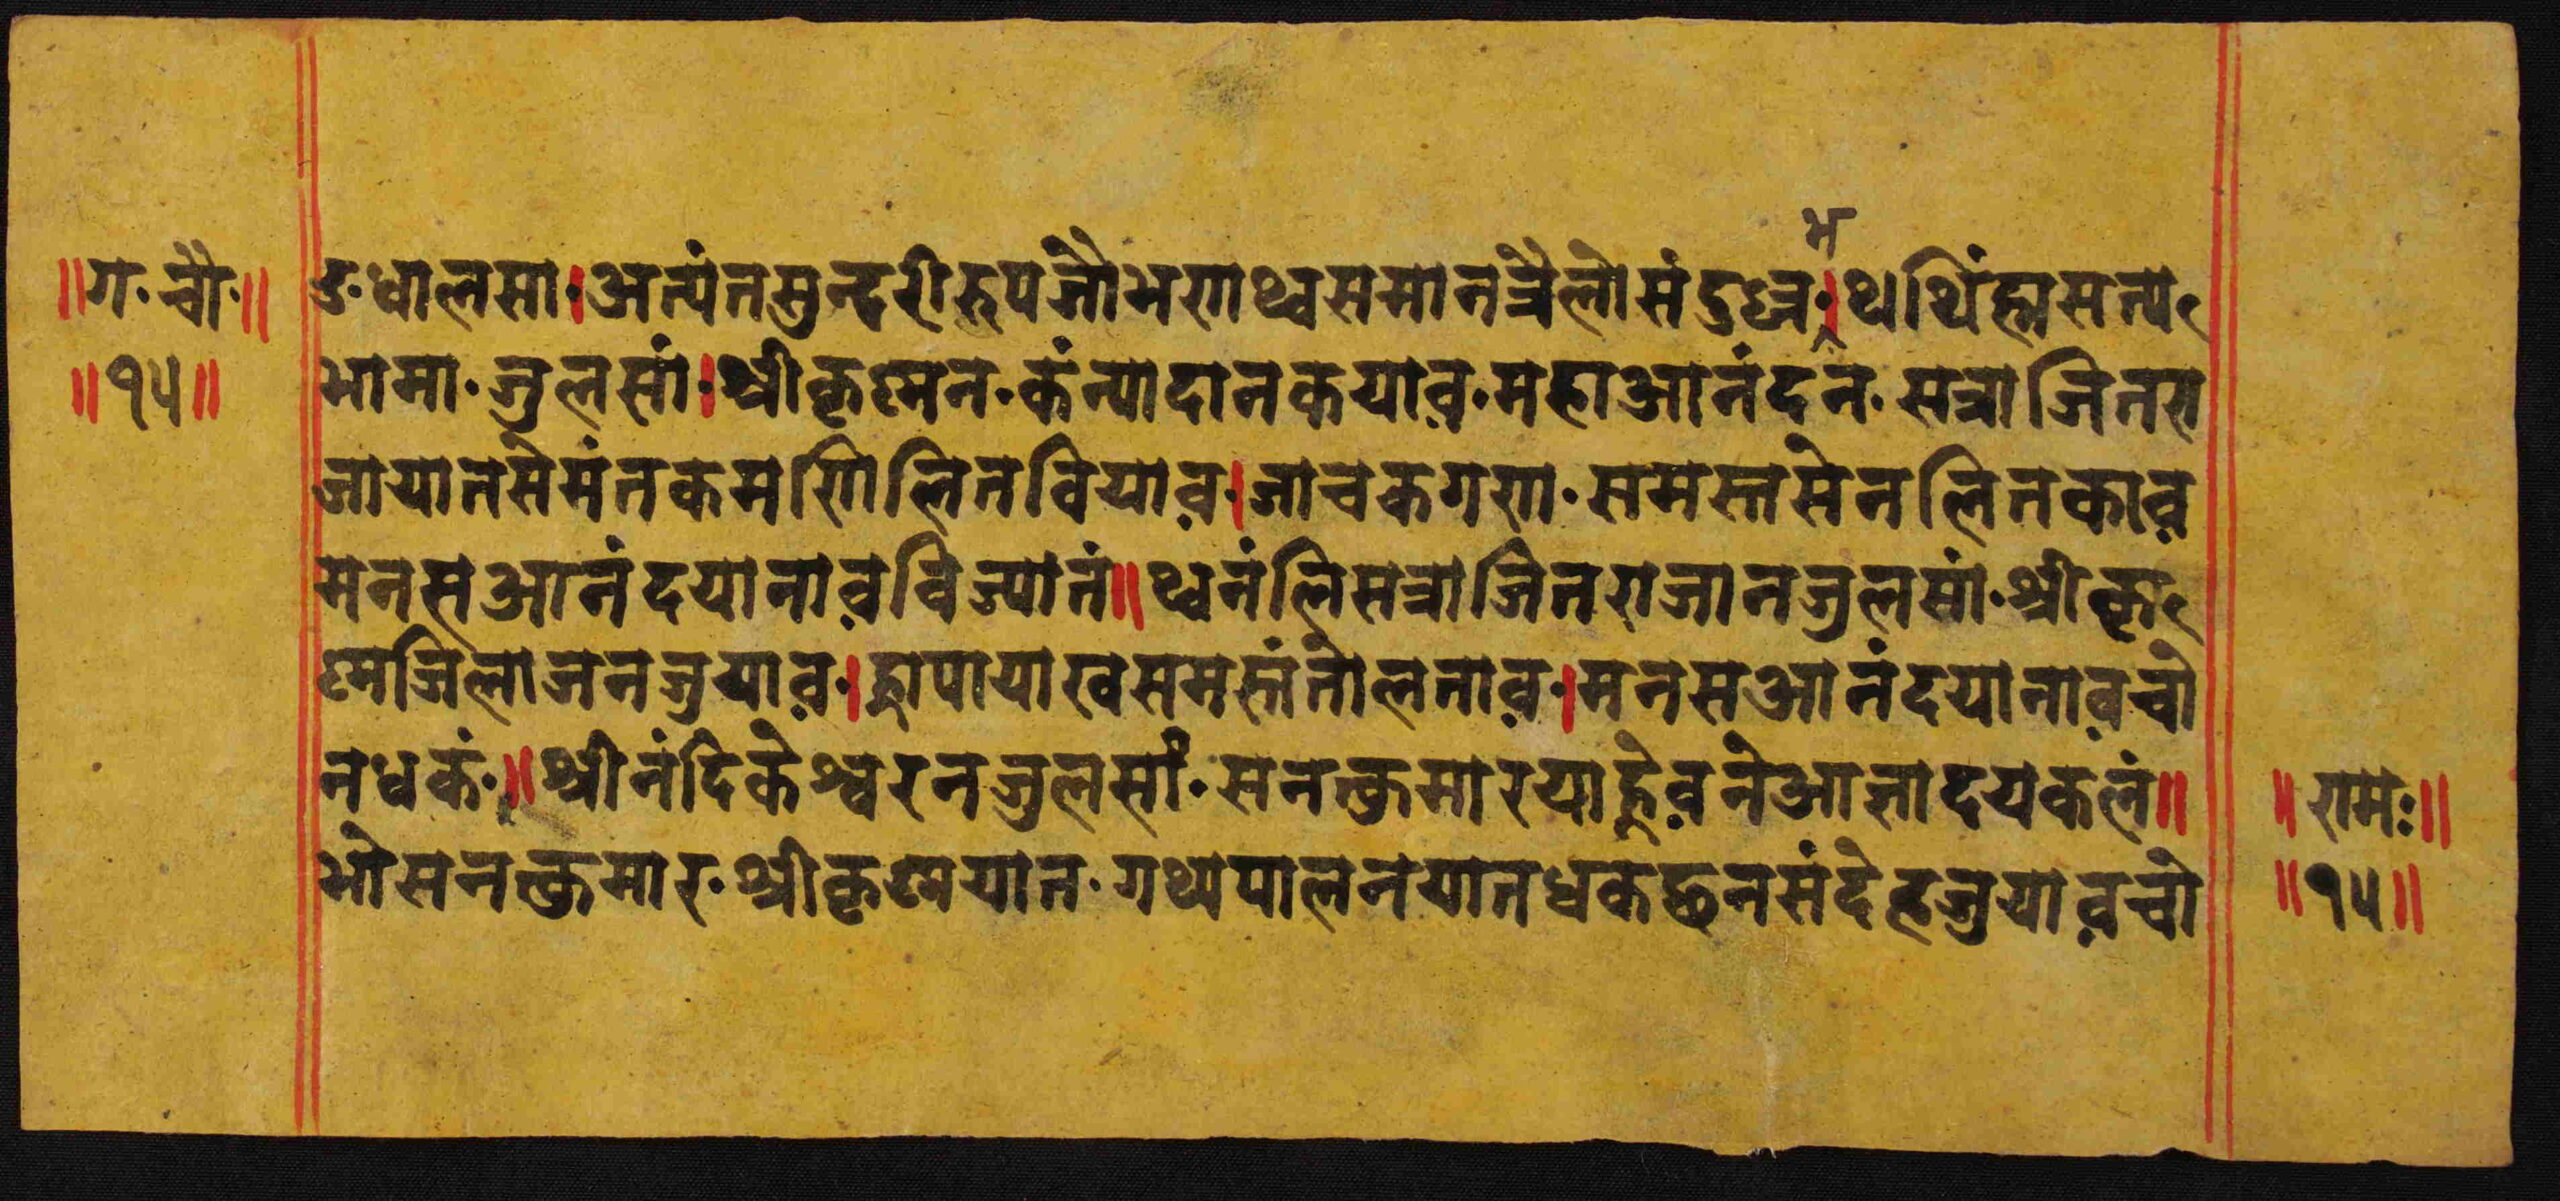 ॥ग·चौ·॥ ङ·धालसा·।अत्यंतसुन्दरीरुपजौभराथ्वसमानत्रैलोसंदुध्व·।थथिंह्मसत्य
म
॥१५॥ भामा·जुलसां·।श्रीकृष्मन·कंन्यादानकयाव़·महाआनंदन·सत्राजितरा
जायातसेमंतकमणिलितवियाव़·।जाचकगण·समस्तसेनलितकाव़
मनसआनंदयानाव़विज्यातं॥थ्वनंलिसत्राजितराजानजुलसां·श्रीकृ
ष्मजिलाजनजुयाव़·।ह्नापायाखसमस्तंतोलताव़·।मनसआनंदयानाव़चो
नधकं·॥श्रीनंदिकेश्वरनजुलसां·सनत्कुमारयाह्नेव़नेआज्ञादयकलं॥
॥रामः॥
भोसनत्कुमार·श्रीकृष्मयात·गथ्यपालनयातधकछनसंदेहजुयाव़चो
॥१५॥